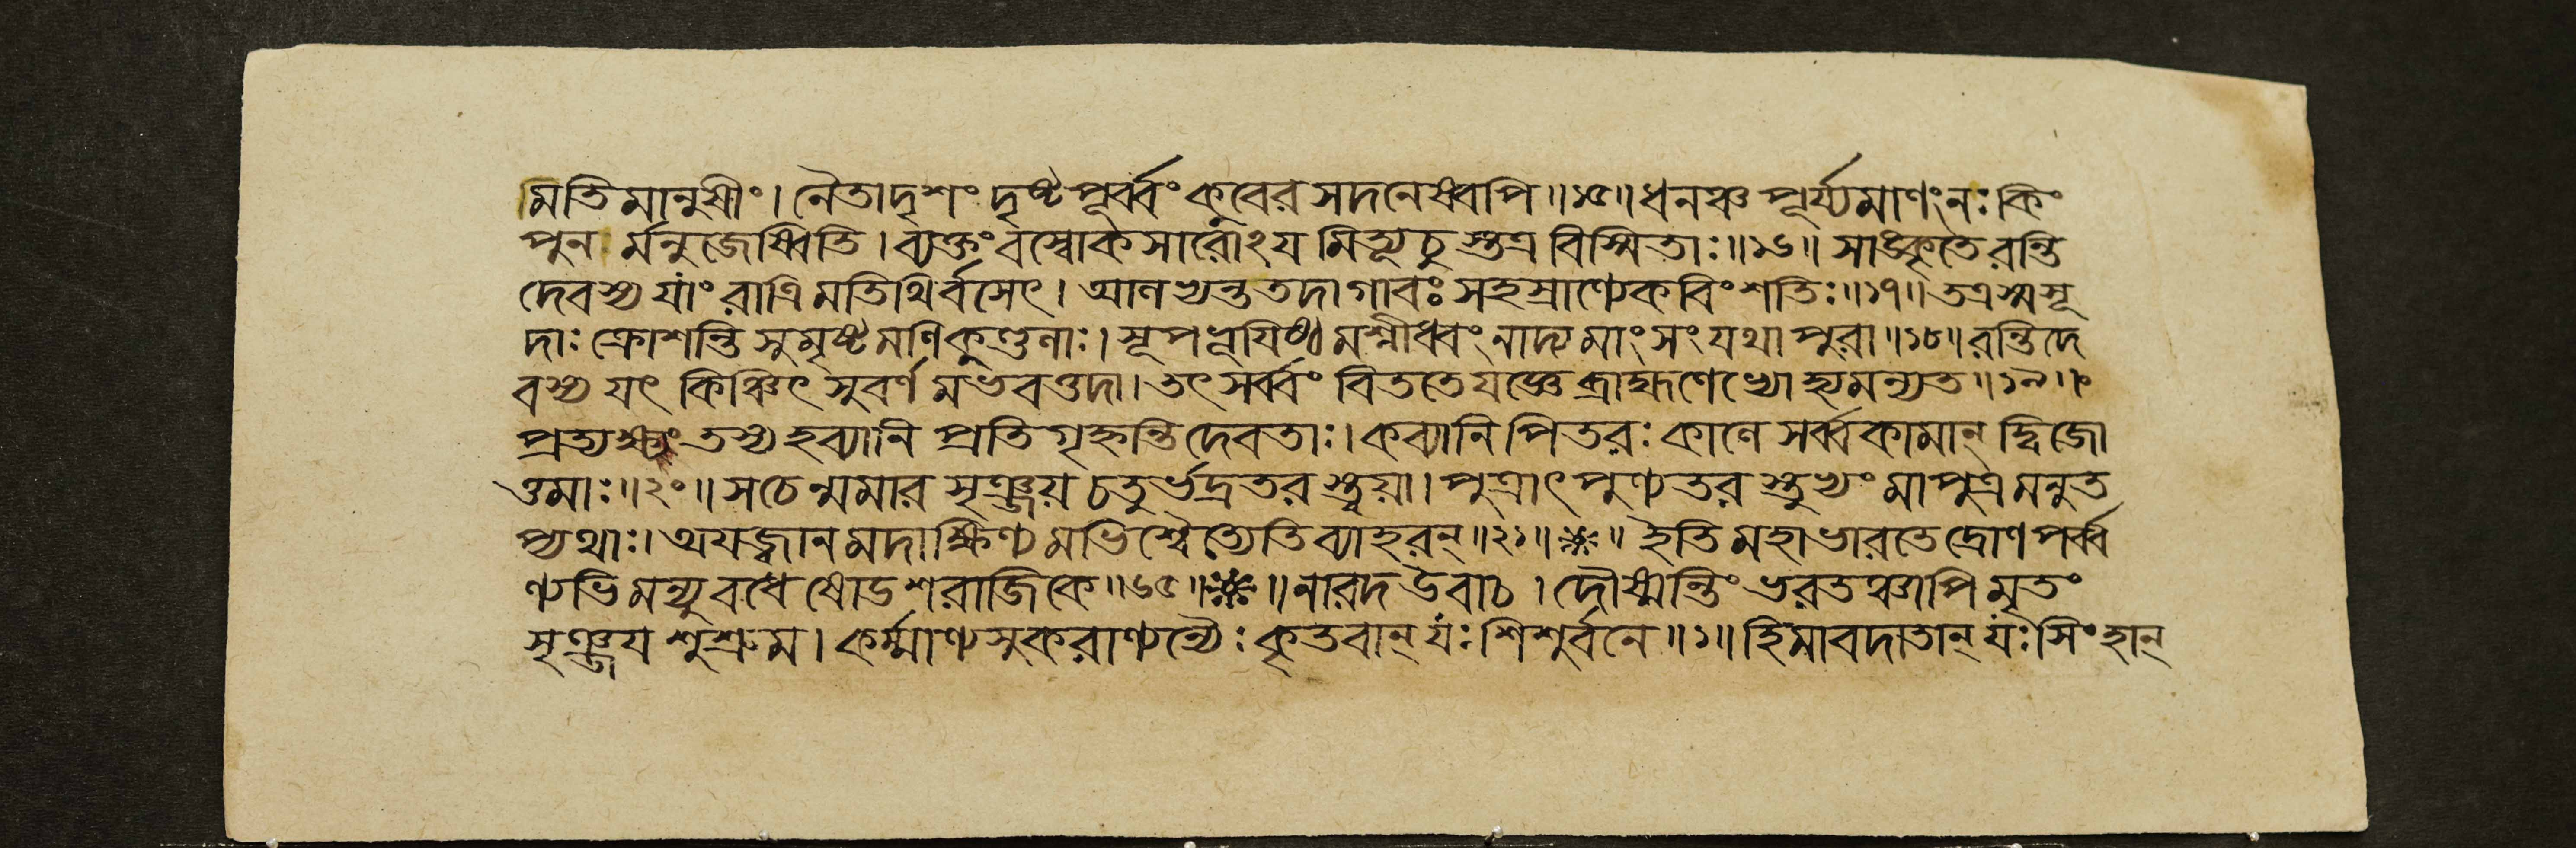 মিতিমানুষীং। নৈতাদৃশং দৃষ্টপূর্ব্বং কুবেরসদনেষ্বপি॥১৫॥ধনঞ্চ পূর্য্যমাণংনঃকিং
পুন র্মনুজেষ্বিতি। ব্যক্তং বস্বোকসারোঽয মিত্যূচু স্তত্র বিস্মিতাঃ॥১৬॥ সাঙ্কৃতে রন্তি
দেবস্য যাং রাত্রিমতিথির্বসেৎ। আলভ্যন্ত তদাগাবঃ সহস্রাণ্যেকবিংশতিঃ॥১৭॥ তত্রস্মসূ
দাঃ ক্রোশন্তি সুমৃষ্টমণিকুণ্ডলাঃ। সূপম্ভূযিষ্ঠমশ্নীধ্বং নাদ্যমাংসং যথা পুরা॥১৮॥ রন্তিদে
বস্য যৎ কিঞ্চিৎ সুবর্ণমভবত্তদা। তৎ সর্ব্বং বিততে যজ্ঞে ব্রাহ্মণেভ্যো হ্যমন্যত॥১৯॥
প্রত্যক্ষং তস্য হব্যানি প্রতিগৃহ্নন্তি দেবতাঃ। কব্যানি পিতরঃ কালে সর্ব্বকামান্ দ্বিজো
ত্তমাঃ॥২০॥ সচেন্মমার সৃঞ্জয় চতুর্ভদ্রতর স্ত্বয়া। পুত্রাৎ পুণ্যতর স্তুভ্যং মাপুত্রমনুত
প্যথাঃ। অযজ্বানমদাক্ষিণ্যমভিশ্বৈত্যেতিব্যাহরন্॥২১॥ ইতি মহাভারতে দ্রোণপর্ব্ব
ণ্যভিমন্যুবধে ষোডশরাজিকে॥৬৫॥ নারদ উবাচ। দৌষ্মন্তিং ভরতঞ্চাপি মৃতং
সৃঞ্জয শুশ্রুম। কর্ম্মাণ্যসুকরাণ্যন্যৈঃ কৃতবান্ যঃ শিশুর্বনে॥১॥ হিমাবদাতান্ যঃ সিংহান্